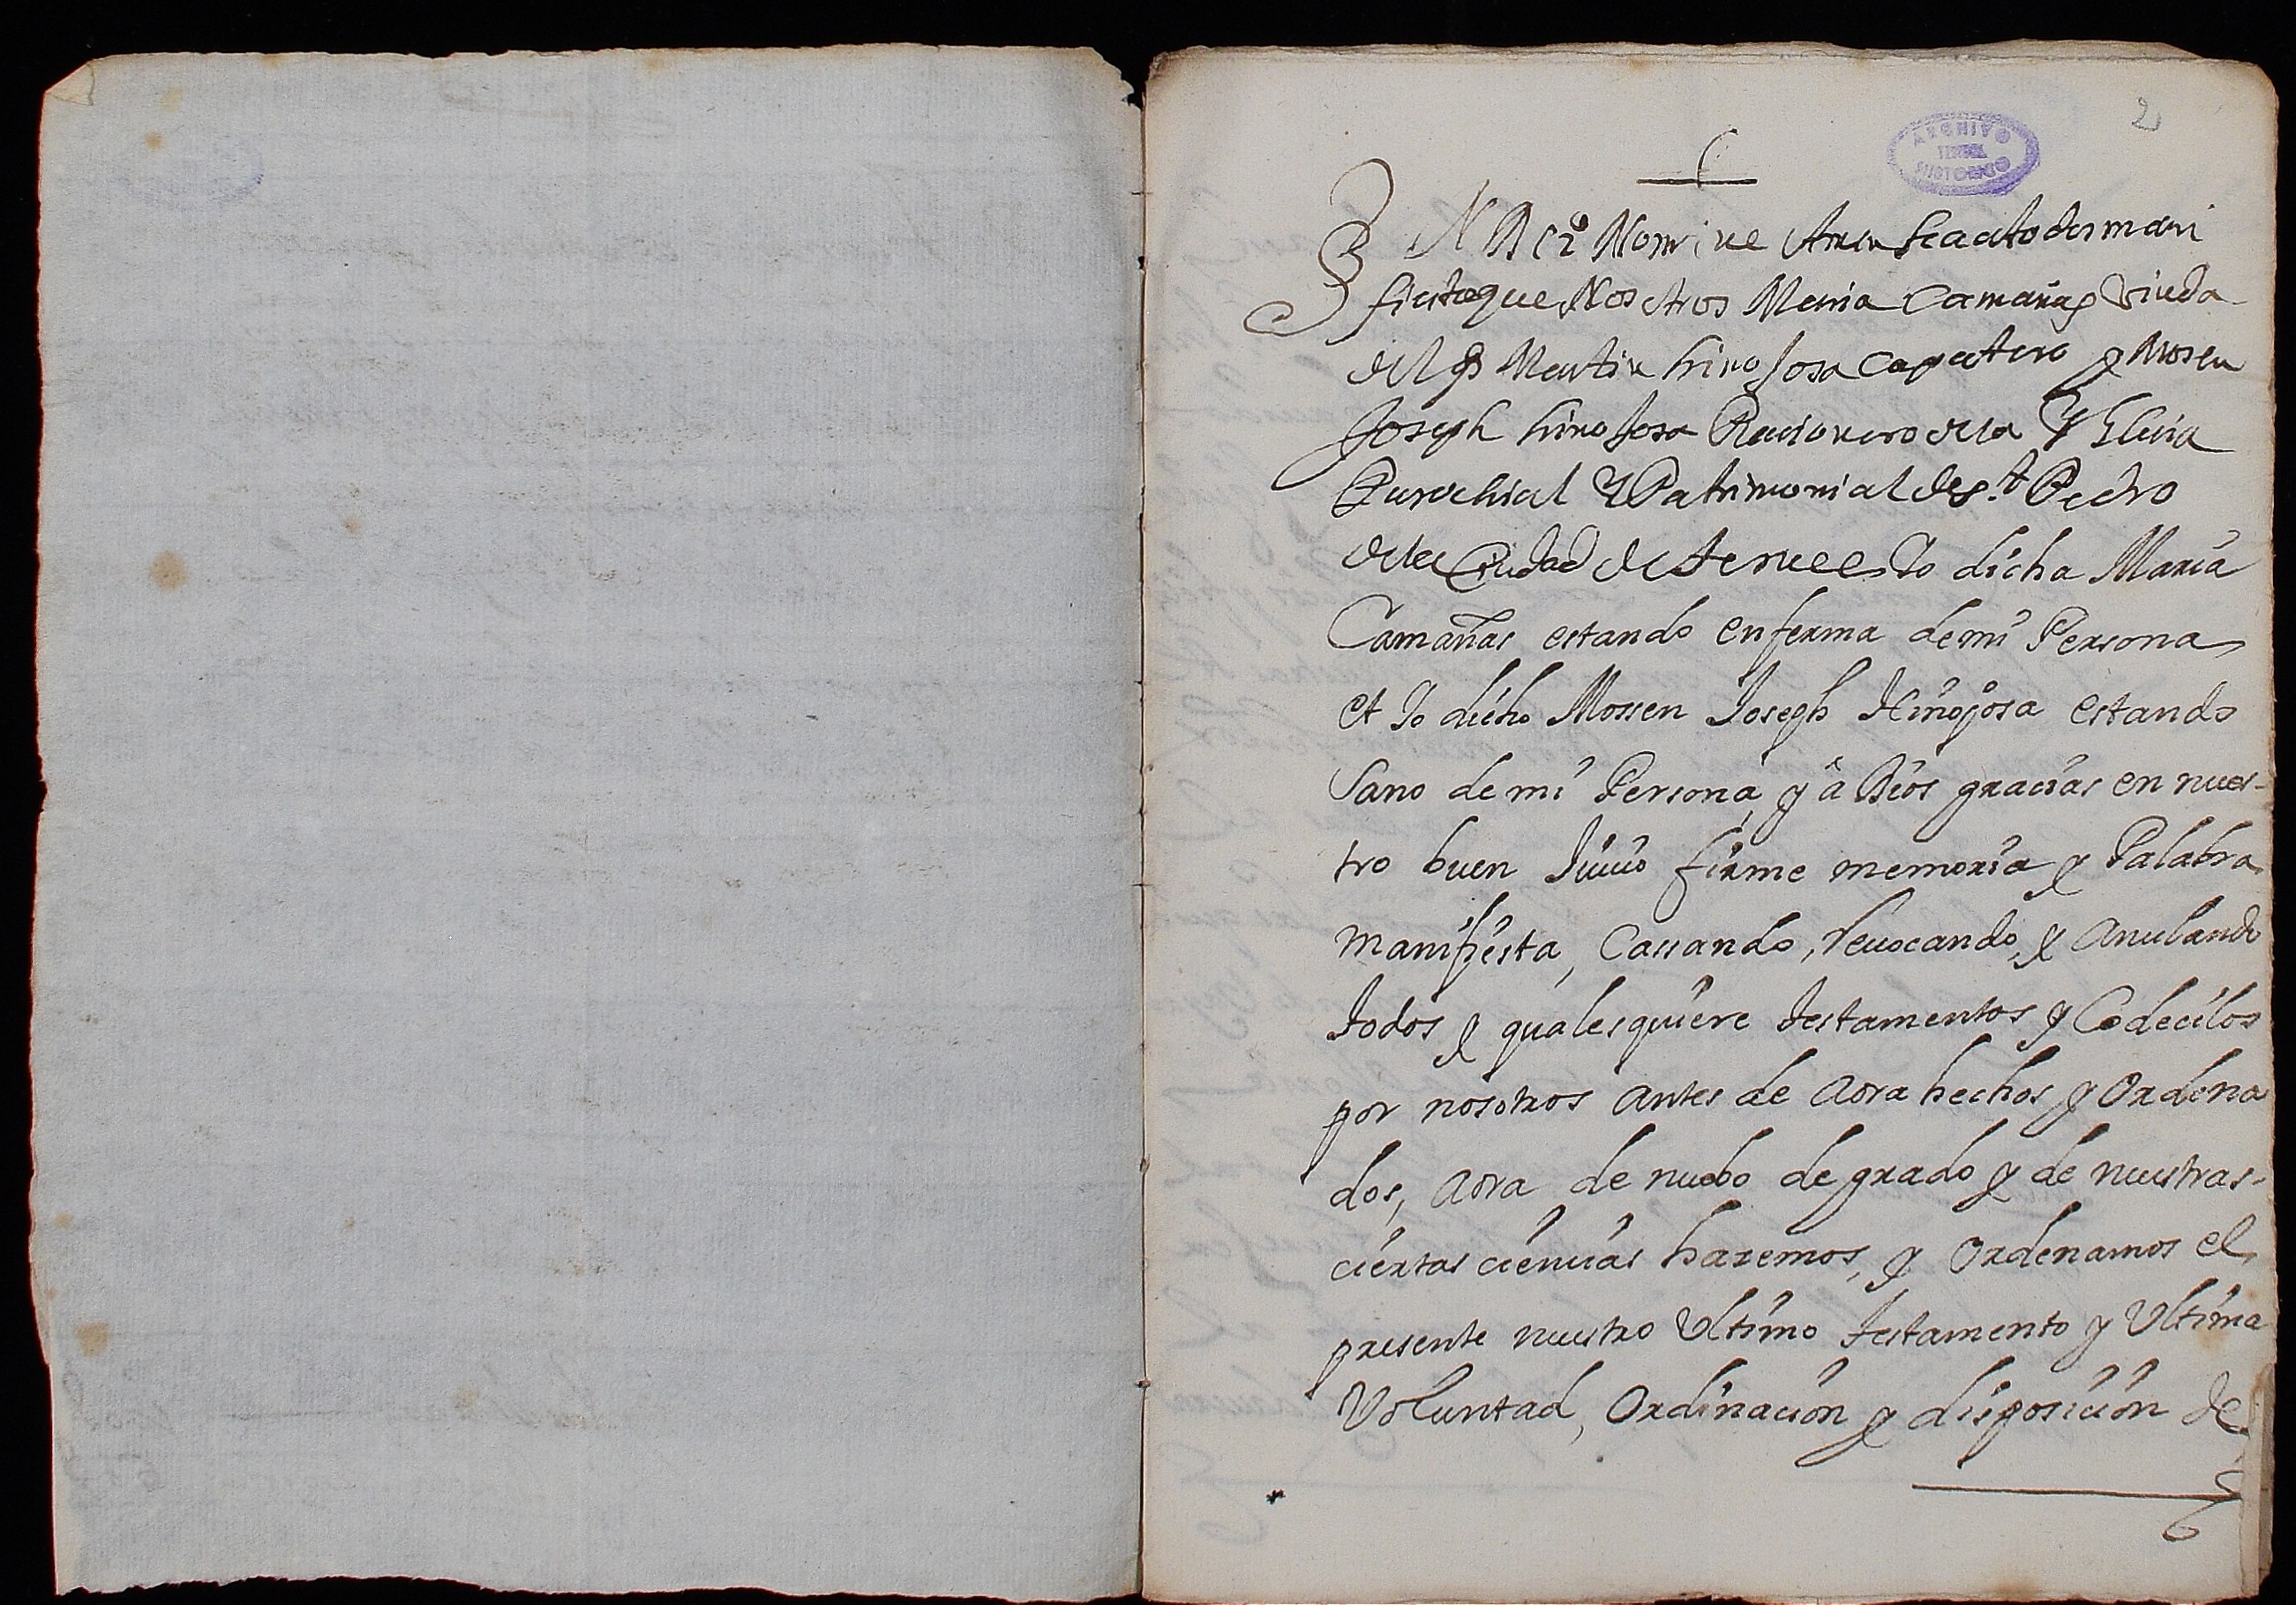 2
ARCHIVO
HISTORICO
TERUEL
IN Dei Nomine Amen sea a todos mani
fiesto que Nosotros Maria Camañas Viuda
del qº Martin hinojosa Capatero y Mosen
Joseph hinojosa Racionero de la Yglecia
Parochial Y Patrimonial de S.t Pedro
de la Ciudad de teruel Yo dicha Maria
Camañas estando enferma de mi Persona
et Yo dicho Mossen Joseph Hinojosa estando
Sano de mi Persona, y â Dios gracias en nues-
tro buen Juicio firme memoria y Palabra
manifiesta, Cassando, revocando, y Anulando
todos y qualesquiere testamentos y Codecilos
por nosotros antes de aora hechos y Ordena
dos, aora de nuebo de grado y de nuestras-
ciertas ciencias hazemos, y Ordenamos el
presente nuestro Ultimo testamento y Ultima
Voluntad, Ordinacion y disposicion de